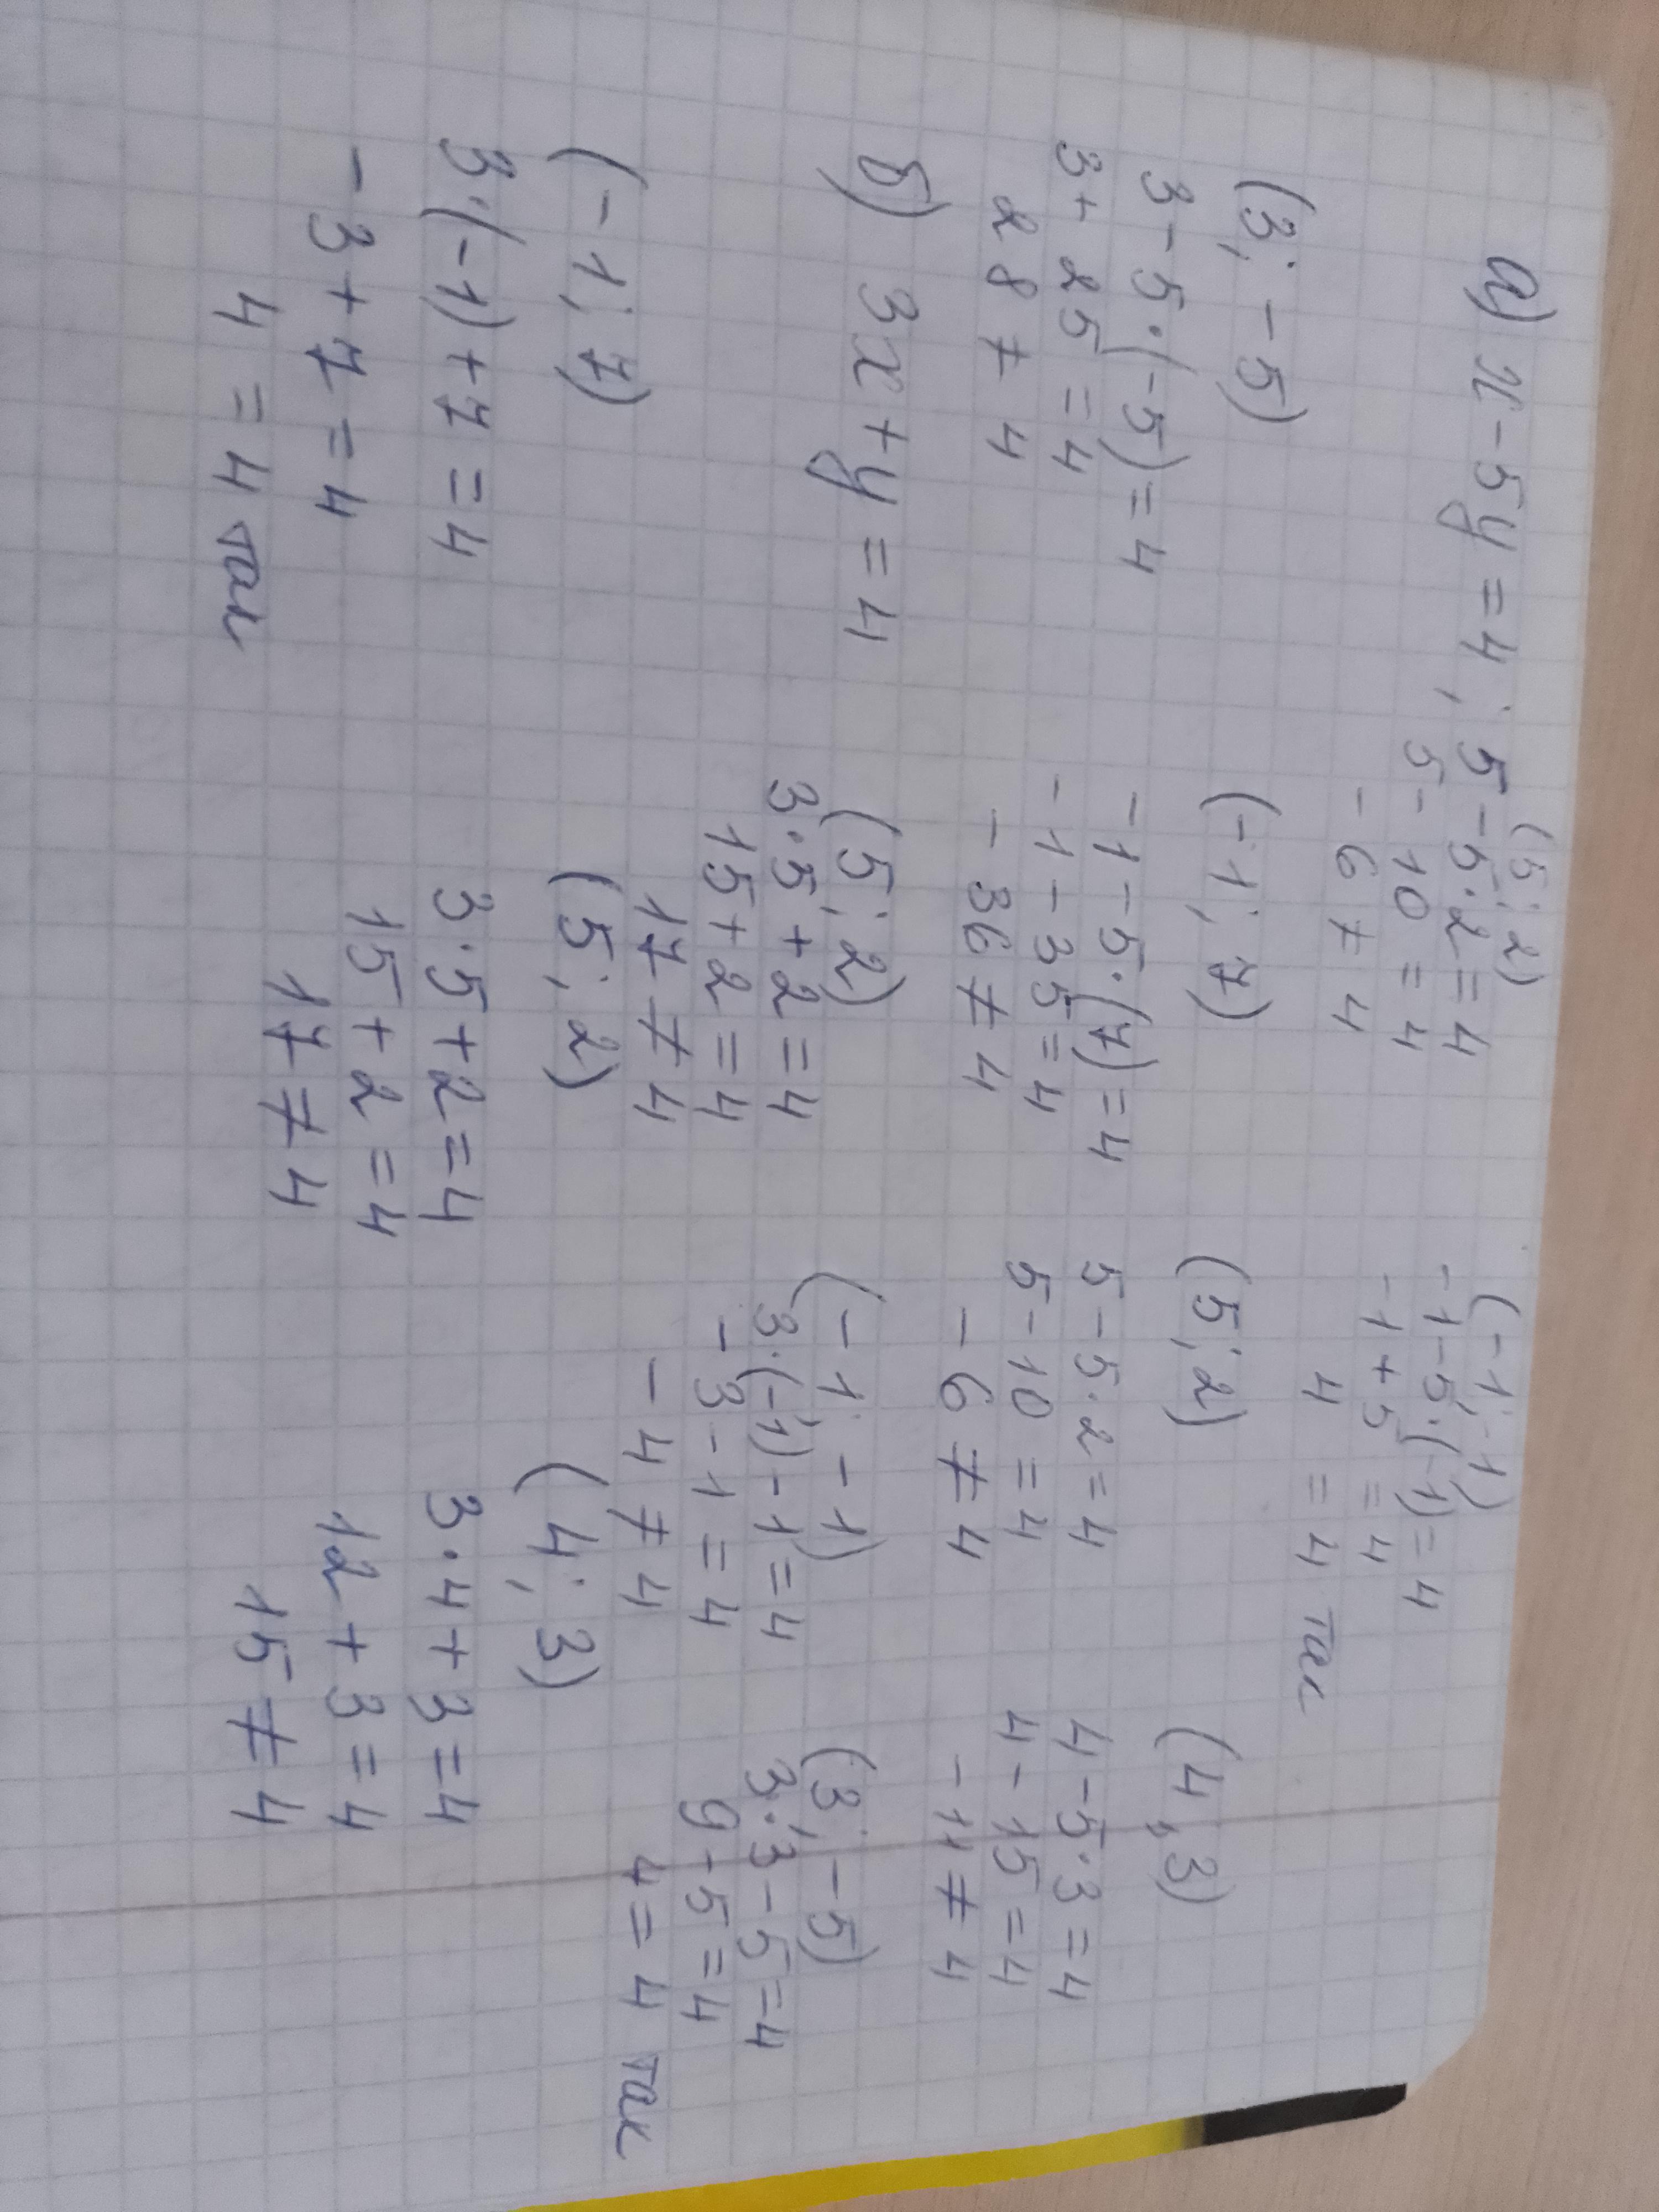 а) x - 5y = 4 ;
(5; 2)
5 - 5·2 = 4
5 - 10 = 4
- 6 ≠ 4
(-1; -1)
-1 - 5·(-1) = 4
-1 + 5 = 4
4 = 4 так
(3; -5)
3 - 5·(-5) = 4
3 + 25 = 4
28 ≠ 4
(-1; 7)
-1 - 5·(7) = 4
-1 - 35 = 4
- 36 ≠ 4
(5; 2)
5 - 5·2 = 4
5 - 10 = 4
- 6 ≠ 4
(4; 3)
4 - 5·3 = 4
4 - 15 = 4
- 11 ≠ 4
б) 3x + y = 4
(5; 2)
3·5 + 2 = 4
15 + 2 = 4
17 ≠ 4
(-1; -1)
3·(-1) - 1 = 4
-3 - 1 = 4
- 4 ≠ 4
(3; -5)
3·3 - 5 = 4
9 - 5 = 4
4 = 4 так
(-1; 7)
3·(-1) + 7 = 4
-3 + 7 = 4
4 = 4 так
(5; 2)
3·5 + 2 = 4
15 + 2 = 4
17 ≠ 4
(4; 3)
3·4 + 3 = 4
12 + 3 = 4
15 ≠ 4